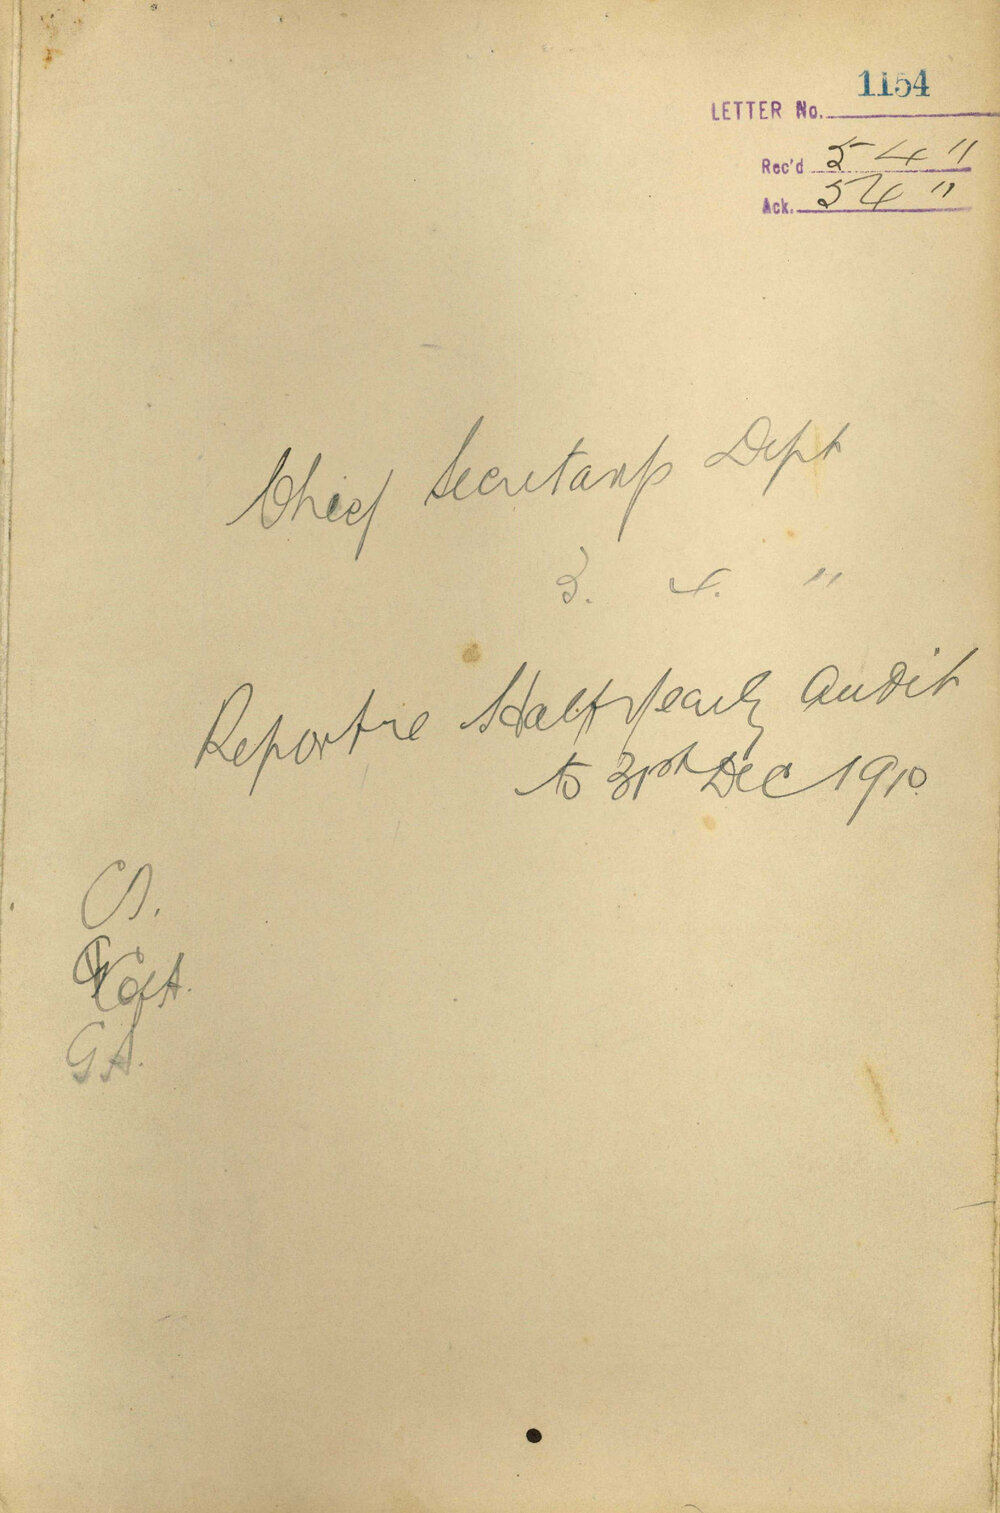 1154
LETTER No.
Rec'd 5 4 11
Ack. 5 4 11
Chief Secretarys Dept
3. 4. 11
Report re Half Yearly Audit
to 31st Dec 1910
C.A.
G.A.